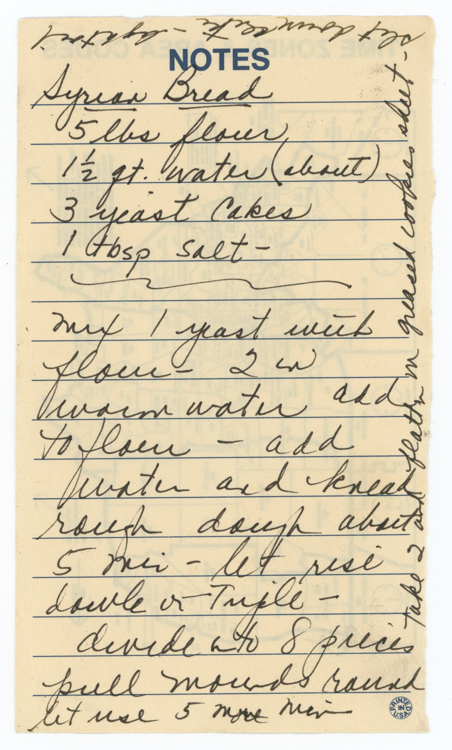 NOTES
Syrian Bread
5 lbs flour
1½ qt. water (about)
3 yeast Cakes
1 tbsp salt -
mix 1 yeast with
flour - 2 in
warm water add
to flour - add
water and knead
rough dough about
5 min - let rise
double or Triple -
divide into 8 pieces
pull mounds round
let rise 5 more min
take 2 and flatten on greased cookie sheet -
PRINTED IN U.S.A.
TIME ZONE AREA CODES